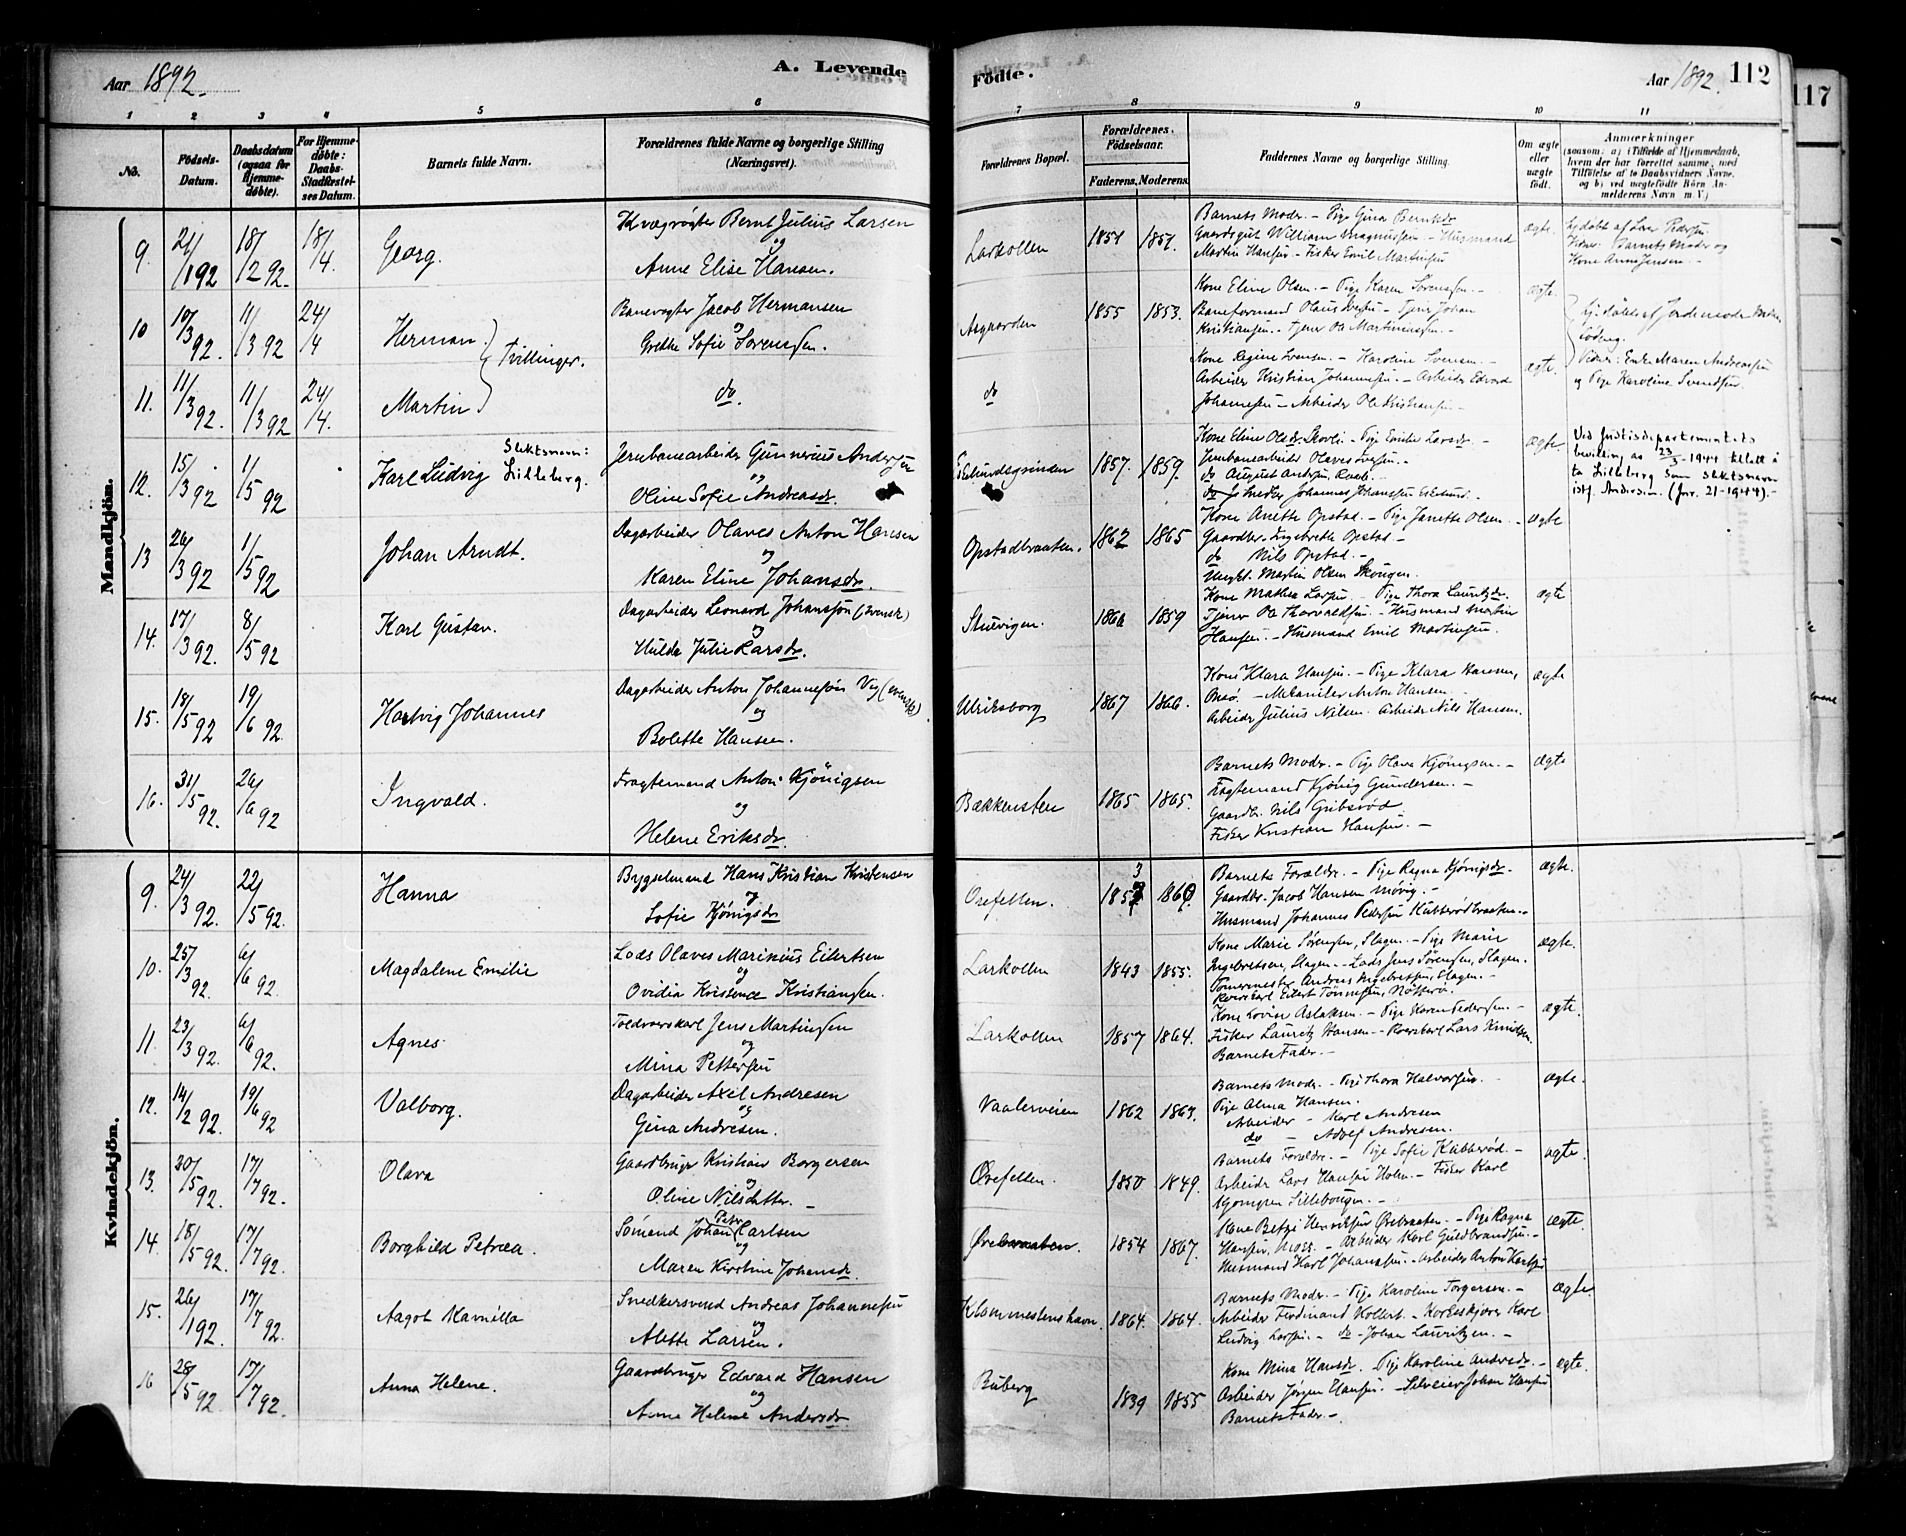 Aar 1892.
A. Levende
Födte.
Aar 1892.
112
117
1 2 3 4 5 6 7 8 9 10 11
No.
Födsels-Datum.
Daabsdatum (ogsaa for Hjemmedöbte).
For Hjemmedöbte: Daabs-Stadfæstelses Datum.
Barnets fulde Navn.
Forældrenes fulde Navne og borgerlige Stilling (Næringsvei).
Forældrenes Bopæl.
Forældrenes Födselsaar.
Faderens. Moderens.
Faddernes Navne og borgerlige Stilling.
Om ægte eller uægte födt.
Anmærkninger
(saasom: a) i Tilfælde af Hjemmedaab, hvem der har forrettet samme, med Tilföielse af to Daabsvidners Navne, og b) ved uægtefödte Börn Anmelderens Navn m. V.)
Mandkjön.
9. 21/1 92 18/12 92. 18/4. Georg.
Kvægrögter Bernt Julius Larsen
og
Anne Elise Hansen.
Larkollen 1851 1851.
Barnets Moder. – Pige Gina Berntsdr
Gaardsgut William Magnussen – Husmand
Martin Hansen – Fisker Emil Martinsen
ægte.
Barnets Moder og
Kone Anne Jensen. –
10 10/3 92. 11/3 92 24/4 Herman.
Banevogter Jacob Hermansen
og
Grethe Sofie Sorensen.
Aagaarden 1855 1853.
Kone Eline Olsen. – Pige Karen Sörensen. –
Baneformand Olaus – Tjener Johan
Kristiansen. – Tjener Ole Martiniussen. –
ægte.
Tvillinger.
11. 11/3 92. 11/3 92 24/4. Martin
do.
do
Kone Regine Svensen. – Karoline Svensen. –
Arbeider Kristian Johannesen. – Arbeider Edvard
Johannesen – Arbeider Ole Kristiansen –
ægte.
Vidner: Enke Maren Andreasen
og Pige Karoline Svendsen.
12. 15/3 92 1/5 92 Karl Ludvig
Slektsnavn:
Lilleberg.
Jernbanearbeider Gunnerius Andersen
og
Oline Sofie Andreasdr.
1857. 1859.
Kone Eline Olsdr Skovli – Pige Emilie Larsdr –
Jernbanearbeider Olaves Iversen. –
do August Andersen
do Johannes Johanssen
ægte
Ved Justisdepartementets
bevilling av 23/3-1944 tillatt å
ta Lilleberg som slektsnavn
istf. Andersen. (Jnr. 21-1944). –
13 26/3 92 1/5 92 Johan Arndt.
Dagarbeider Olaves Anton Hansen
og
Karen Eline Johansdr.
Opstadbraaten. 1862 1865
Kone Anette Opstad. – Pige Janette Olsen. –
Gaardbr. Ingebreth Opstad. –
do Nils Opstad. –
Ungk. Martin Olsen Skougen.
ægte
14. 17/3 92. 8/5 92 Karl Gustav.
Dagarbeider Leonard Johanssön (svensk)
og
Hulda Julie Larsdr.
Stuevigen. 1859
Kone Mathea Larsen. – Pige Thora Lauritzdr.
Tjener Ole Thorvaldsen. – Husmand Martin
Hansen. – Husmand Emil Martinsen.
ægte
15. 18/5 92 19/6 92. Hartvig Johannes
Dagarbeider Anton Johannesön Vej (svensk).
og
Bolette Hansen.
Ulriksborg 1867 1866.
Kone Klara Hansen. – Pige Klara Hansen,
Onsö. – Anton Hansen
Arbeider Julius Nilsen. Arbeider Nils Hansen.
ægte
16. 31/5 92. 26/6 92 Ingvald.
Fragtemand Anton Kjönigsen
og
Helene Eriksdr.
Bækkensten 1865 1865.
Barnets Moder. – Pige Olava Kjönigsen. –
Fragtemand Kjönig Gundersen. –
Gaardbr. Nils Gribsröd
Fisker Kristian Hansen. –
ægte
Kvindekjön.
9. 24/3 92. 22/5 92. Hanna
Bygselmand Hans Kristian Kristensen
og
Sofie Kjönigsdr
Orefelten. 1853 1860.
Barnets Forældre. – Pige Ragna Kjönigsdr. –
Gaardbr. Jacob Hansen Mövig. –
Husmand Johannes Pedersen Kubberödbraaten. –
ægte.
10. 25/3 92. 6/6 92. Magdalene Emilie
Lods Olaves Marinius Eilertsen
og
Ovidia Kristence Kristiansen.
Larkollen 1843 1855.
Kone Marie Sörensen, Slagen. – Pige Marie
Ingebretsen, Slagen. – Lods Jens Sörensen, Slagen.
Tömermester Andreas Ingebretsen, Slagen. –
Eilert Tönnesen, Nötterö.
ægte.
11. 23/3 92. 6/6 92. Agnes
Toldroerskarl Jens Martinsen
og
Mina Pettersen
Larkollen 1857 1864.
Kone Lovise Aslaksen. – Pige Karen Pedersen. –
Fisker Lauretz Hansen. – Roerskarl Lars Knudsen.
Barnets Fader. –
ægte.
12. 14/2 92. 19/6 92 Valborg.
Dagarbeider Axel Andresen
og
Gina Andresen.
Vaalerveien 1862 1863.
Barnets Moder. – Pige Thora Halvorsen.
Pige Alma Hansen.
Arbeider – Karl Andresen
do – Adolf Andresen.
ægte.
13. 30/5 92. 17/7 92. Olava
Gaardbruger Kristian Borgersen
og
Oline Nilsdatter. –
Örefelten. 1850 1849.
Barnets Forældre. – Pige Sofie Kubberöd. –
Arbeider Lars Hansen Holm. – Fisker Karl
ægte.
14. 18/5 92. 17/7 92. Borghild Petrea.
Sömand Johan Petr Carlsen
og
Maren Kirstine Johansdr.
Örebraaten. 1854 1867.
Kone Betzi Henriksen Örebraaten. – Pige Ragna
Hansen, Moss. – Arbeider Karl Guldbrandsen. –
Husmand Karl Johansen. – Arbeider Anton Karlsen
ægte.
15. 26/1 92. 17/7 92. Aagot Kamilla
Snedkersvend Andreas Johannesen
og
Alette Larsen.
Klommestenshavn. 1864. 1864.
Barnets Moder. – Pige Karoline Torgersen. –
Arbeider Ferdinand Kollert. – Korkeskjærer Karl
Ludvig Larsen. – do – Johan Lauritzen. –
ægte.
16 28/5 92 17/7 92. Anna Helene.
Gaardbruger Edvard Hansen
og
Anne Helene Andersdr
Buberg 1839 1855
Kone Mina Hansdr. – Pige Karoline Andersdr. –
Arbeider Jörgen Hansen. – Selveier Johan Hansen
Barnets Fader. –
ægte.